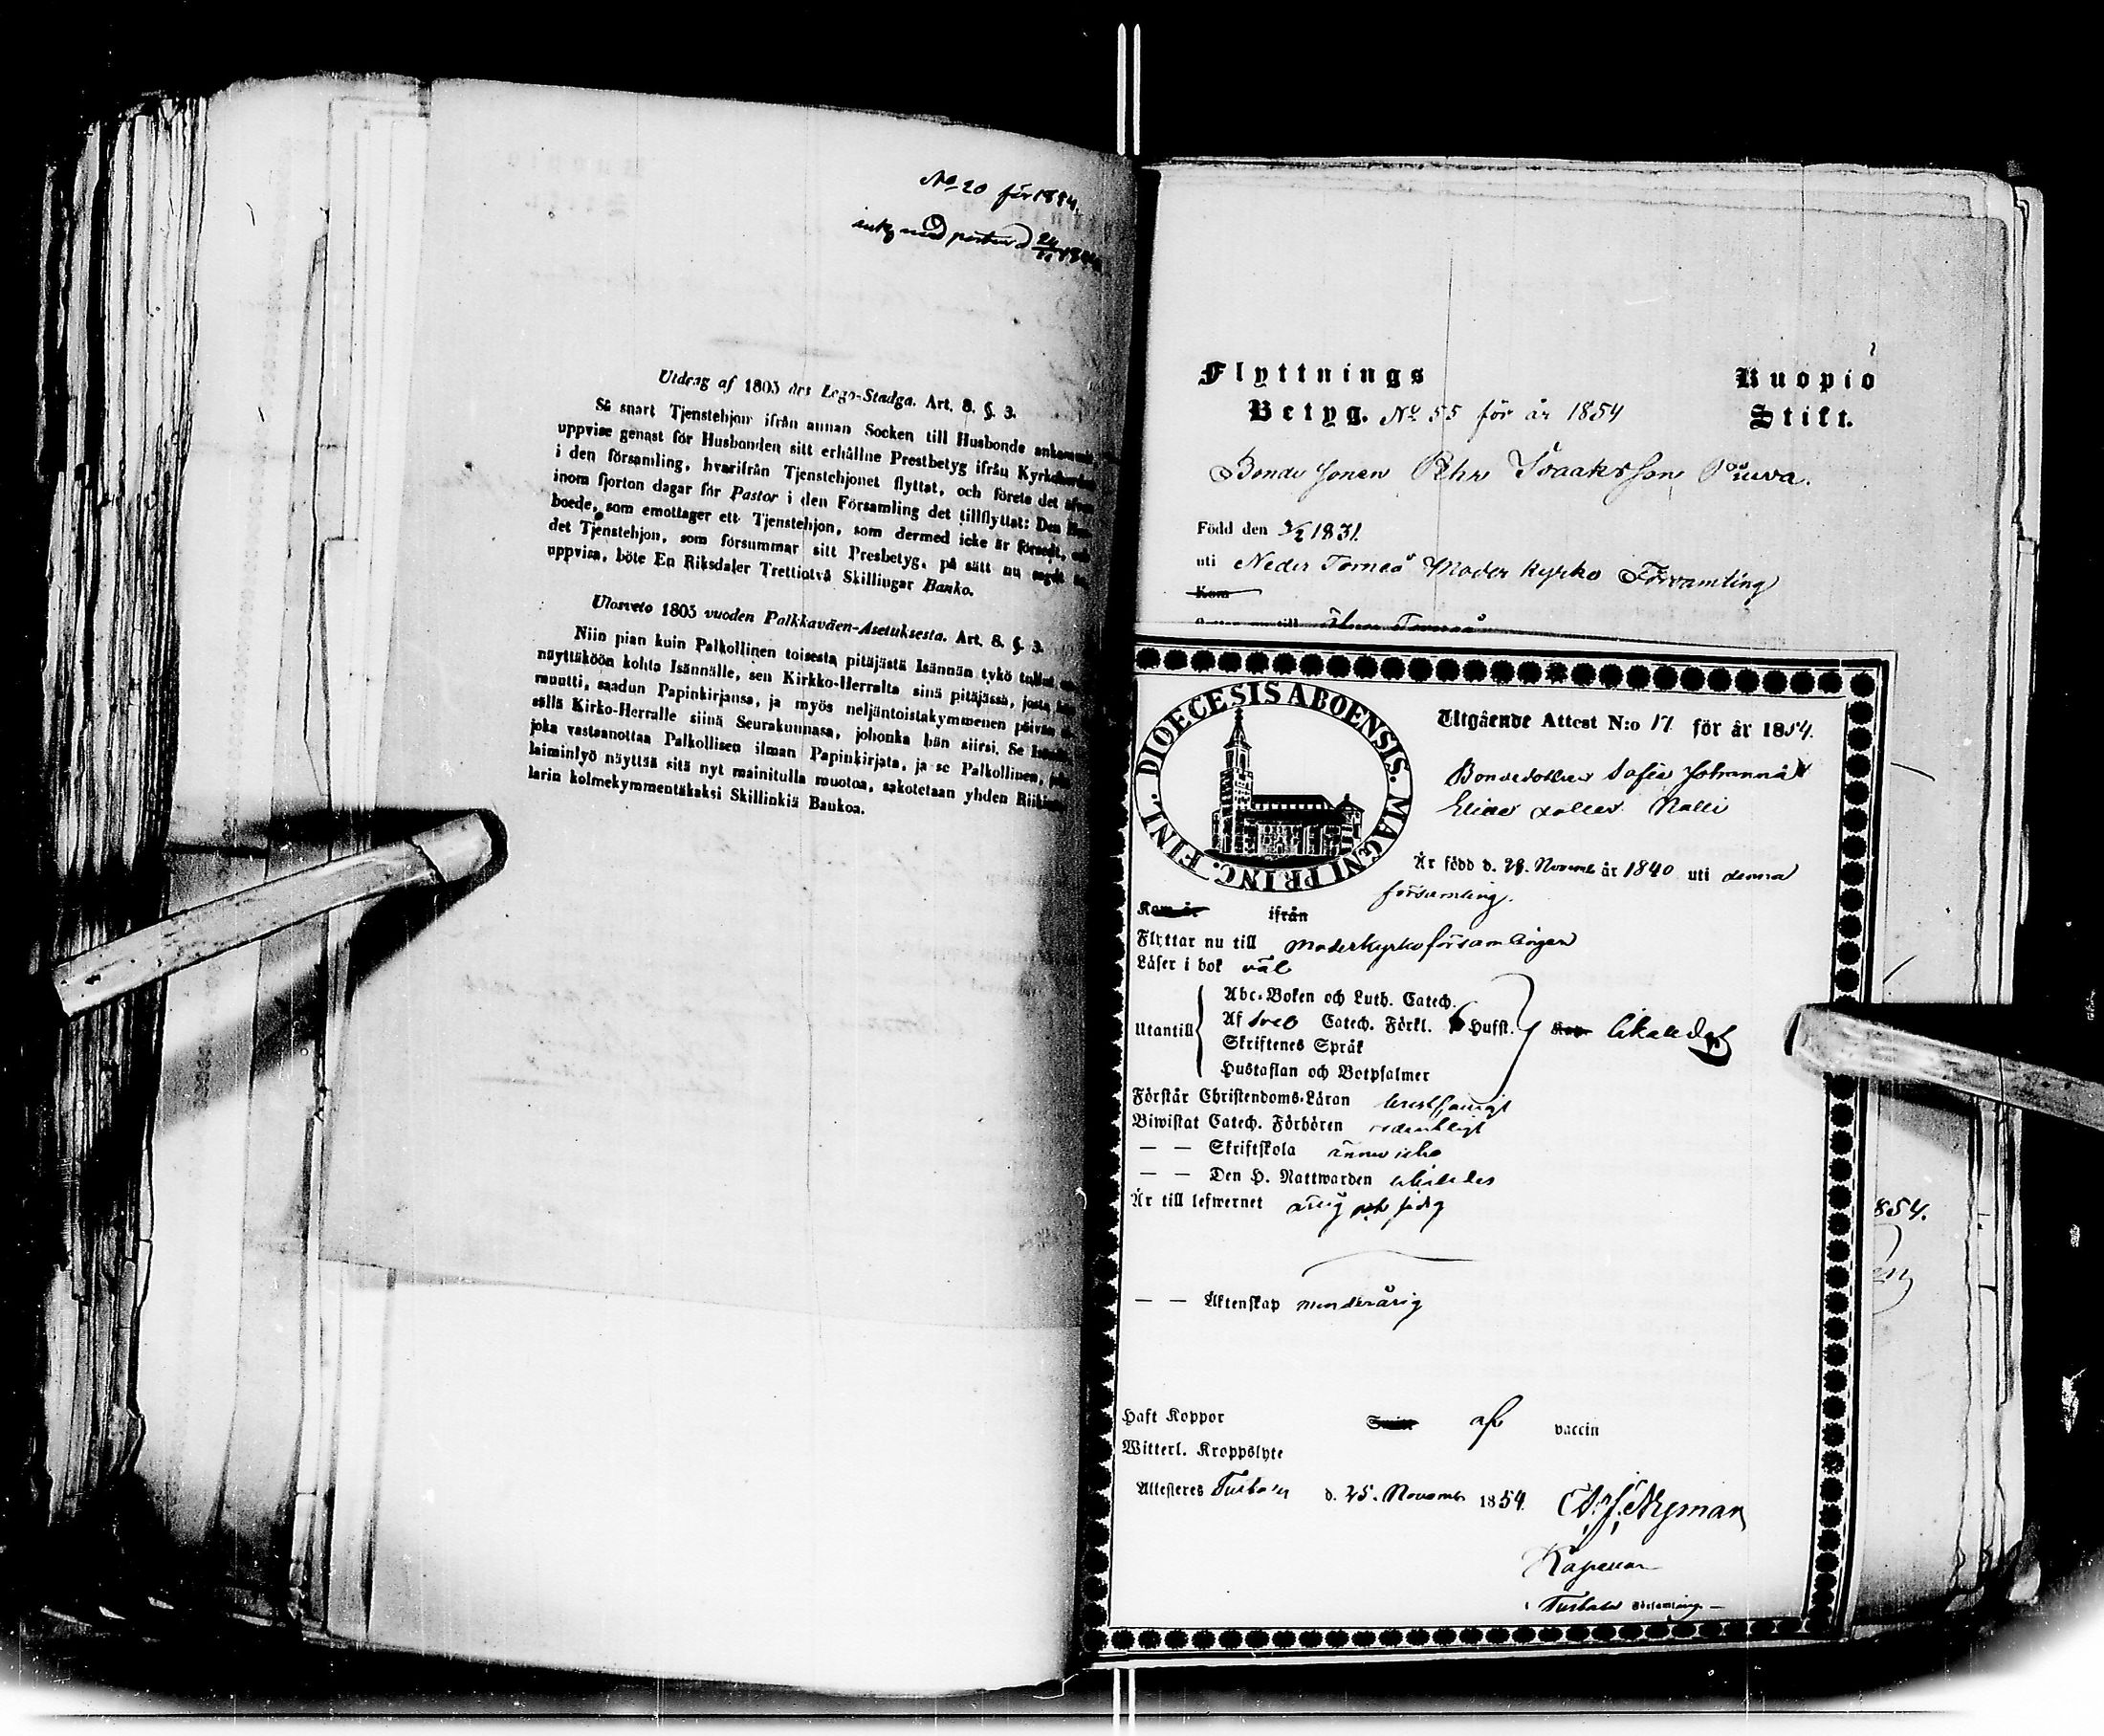 No 20 för 1854.
ink. med posten d 24/11 1854
Utdrag af 1805 års Lego-Stadga. Art. 8. §. 3.
Så snart Tjenstehjon ifrån annan Socken till Husbonde ankommit,
uppvise genast för Husbonden sitt erhållne Prestbetyg ifrån Kyrkoherden
i den församling, hvarifrån Tjenstehjonet flyttat, och förete det äfven
inom fjorton dagar för Pastor i den Församling det tillflyttat: Den Hus-
boede, som emottager ett Tjenstehjon, som dermed icke är försedt, och
det Tjenstehjon, som försummar sitt Presbetyg, på sätt nu sagdt är,
uppvisa, böte En Riksdaler Trettiotvå Skillingar Banko.
Ulosveto 1805 vuoden Palkkaväen-Asetuksesta. Art. 8. §. 3.
Niin pian kuin Palkollinen toisesta pitäjästä Isännän tykö tullut
näyttäköön kohta Isännälle, sen Kirkko-Herralta sinä pitäjässä, josta hän
muutti, saadun Papinkirjansa, ja myös neljäntoistakymmenen päivän
sällä Kirko-Herralle siinä Seurakunnasa, johonka hän siirsi. Se Isäntä,
joka vastaanottaa Palkollisen ilman Papinkirjata, ja se Palkollinen, joka
laiminlyö näyttää sitä nyt mainitulla muotoa, sakotetaan yhden Riikin
larin kolmekymmentäkaksi Skillinkiä Bankoa.
Flyttnings Kuopio
Betyg. No 55 för år 1854 Stift.
Bonde Sonen Pehr Isaaksson
Född den 3/2 1831.
uti Neder Torneå Moder kyrko Församling
Kom
till Öfver Torneå
DIOECESIS ABOENSIS. MAGNI PRINC. FINL.
Utgående Attest N:o 17 för år 1854.
Bondedottren Sofia Johanna
Elias dotter Nalli
Är född d. 28. Novemb år 1840 uti denna
församling.
Kom år ifrån
Flyttar nu till moderkyrkoförsamlingen
Läser i bok väl
Abc-Boken och Luth. Catech.
Utantill Af Sveb Catech. Förkl. 6 Hufst. likaledes
Skriftenes Språk
Hustaflan och Botpsalmer
Förstår Christendoms-Läran
Biwistat Catech. Förhören ordentligt
— — Skriftskola ännu icke
— — Den H. Nattwarden likaledes
Är till lefwernet ärlig och sedig
— — Äktenskap minderårig
Haft Koppor af vaccin
Witterl. Kroppslyte
Attesteres d. 25. Novemb 1854.
Nyman
Kapellan
i Församling.
854.